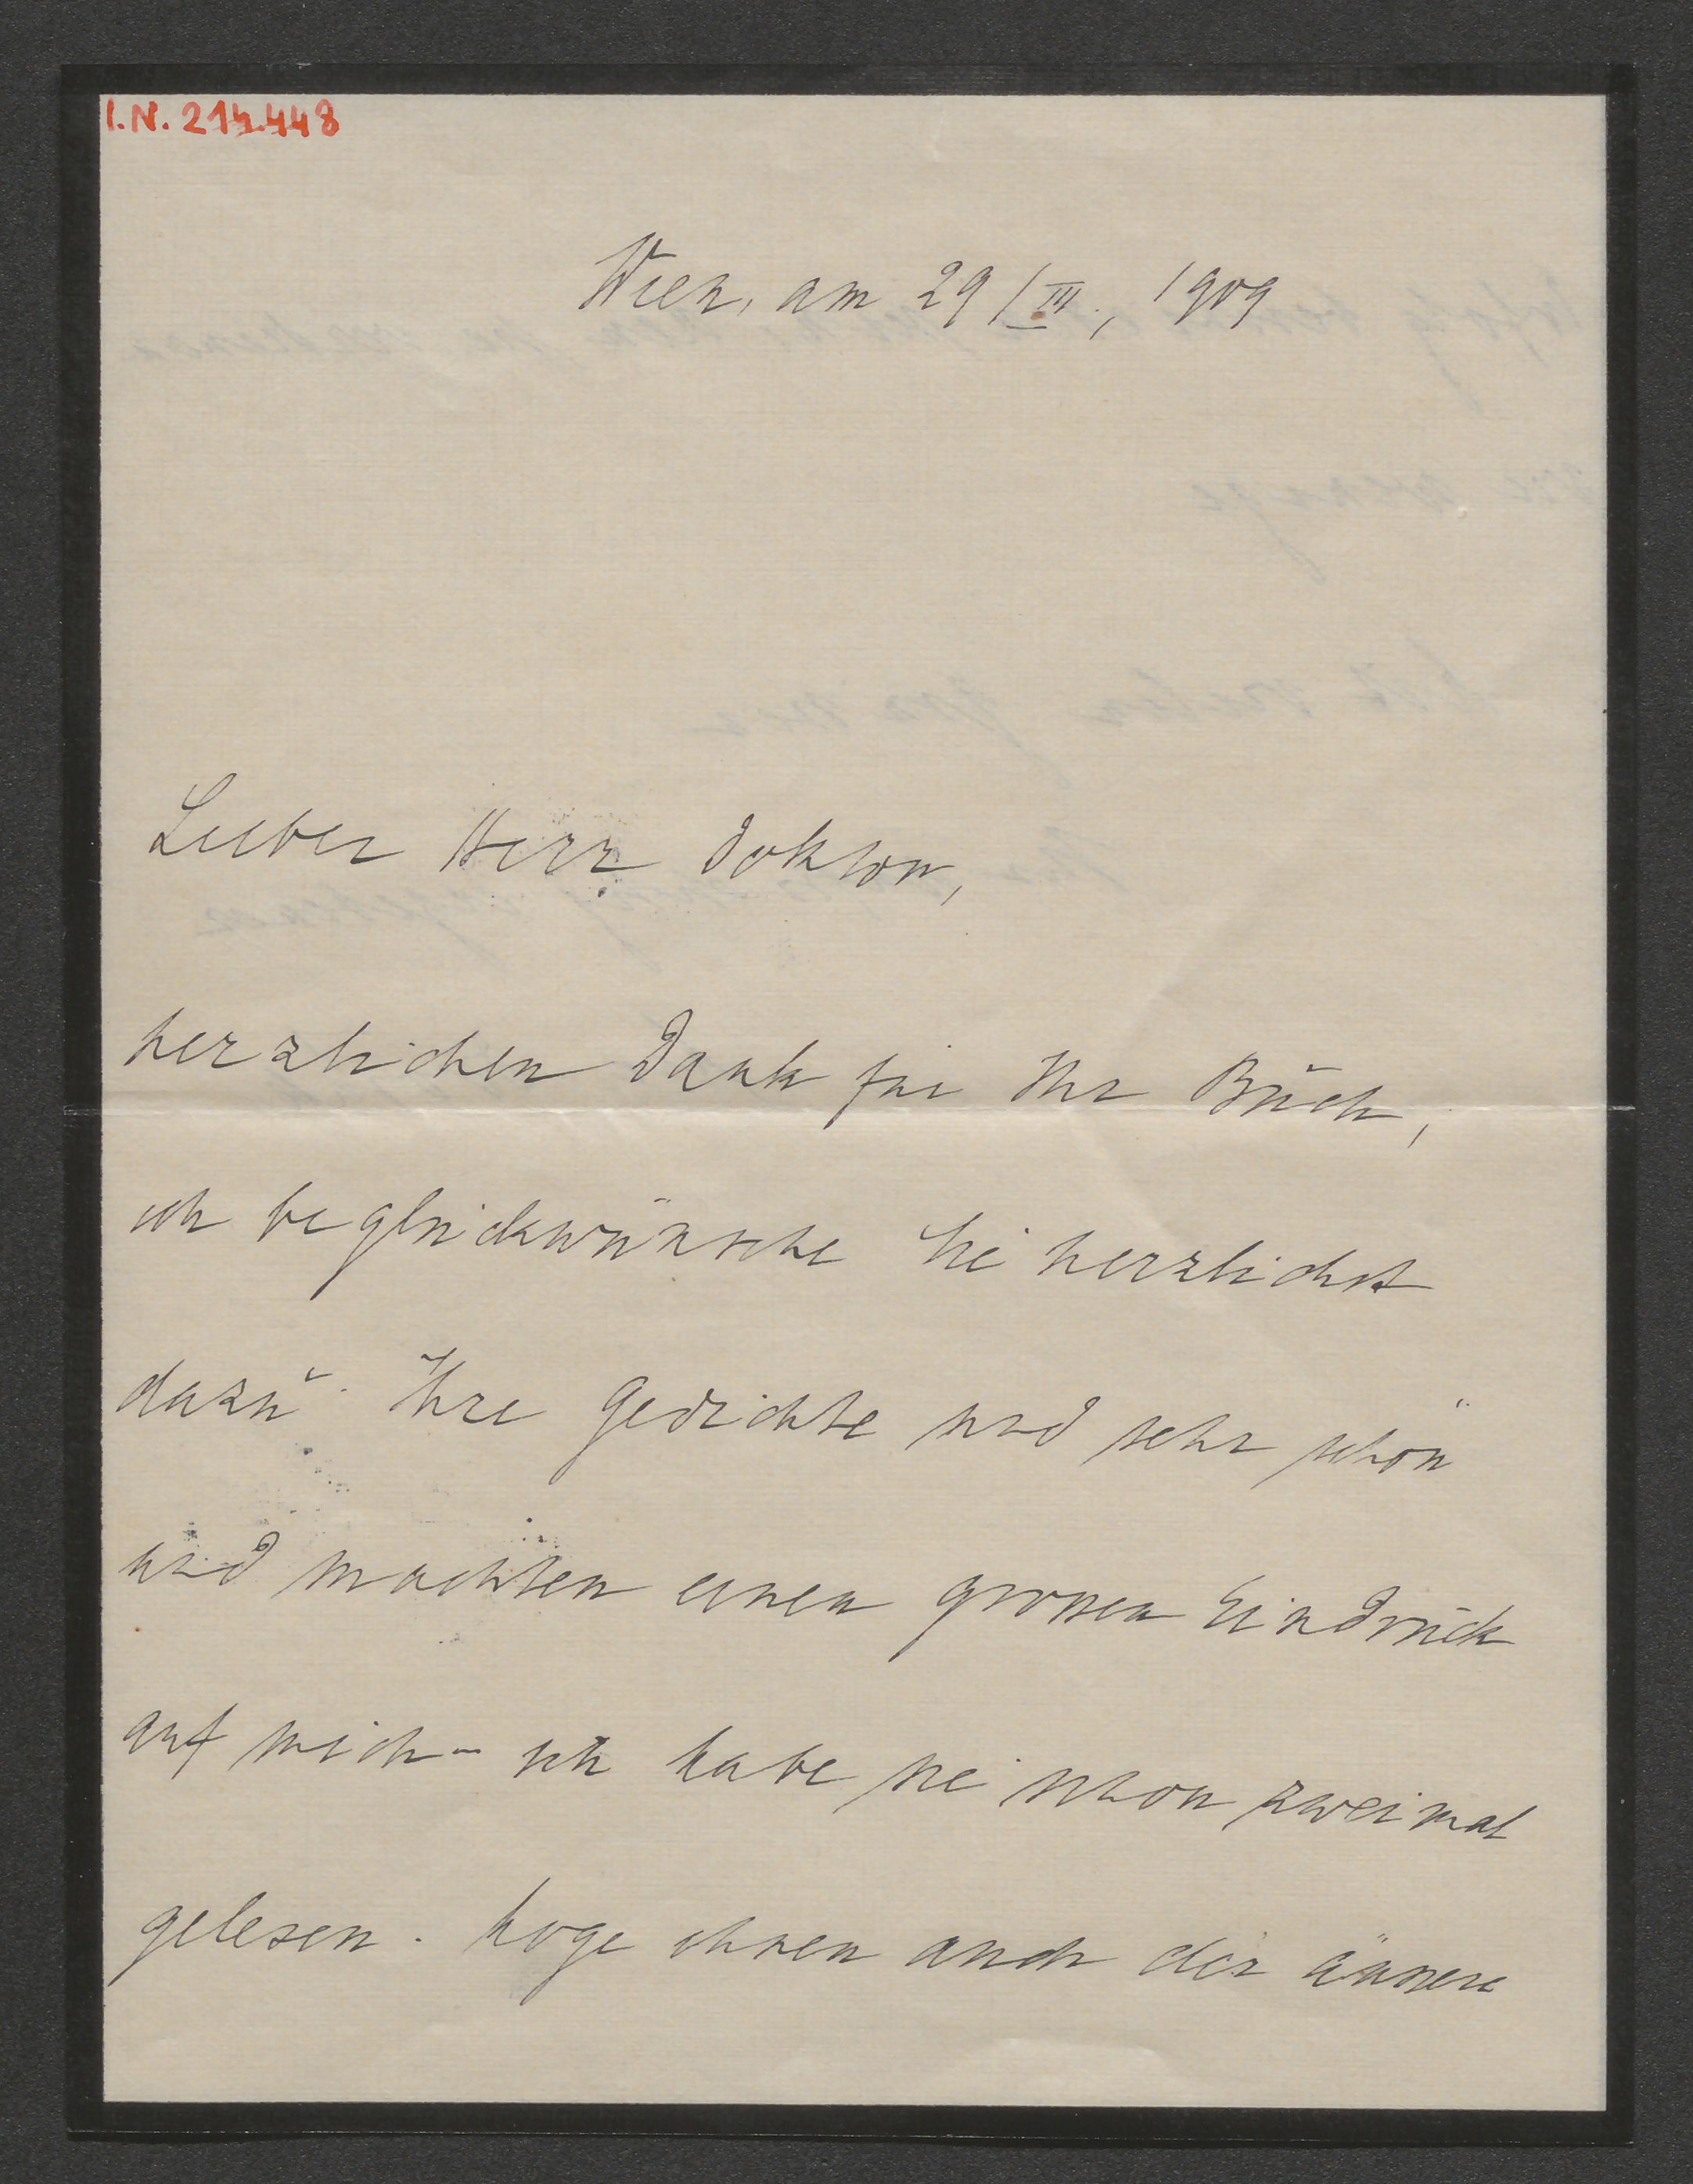 I.N. 214.448
Wien, am 29/III., 1909
Lieber Herr Doktor,
herzlichen Dank für Ihr Buch,
ich beglückwünsche Sie herzlichst
dazu. Ihre Gedichte sind sehr schön
und machten einen grossen Eindruck
auf mich – ich habe sie schon zweimal
gelesen. Möge ihnen auch der äussere